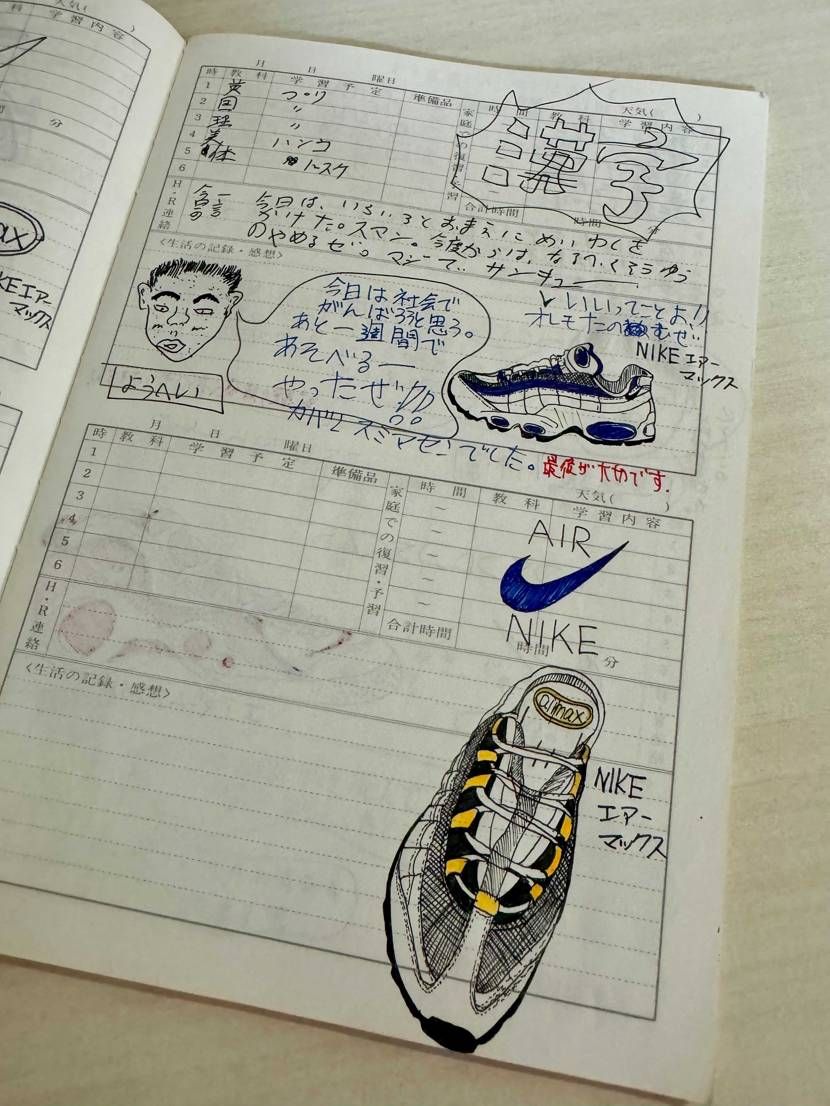 天気( )
科 学習内容
分
IKEエアー
マックス
月 日 曜日
時 教科 学習予定 準備品
時間 教科 学習内容
天気( )
1 英 プリ
2 国 〃
3 理 〃
4 美 ハンコ
5 体
6
家庭での復習・予習
漢字
合計時間 時間 分
H・R連絡
今日の一言
今日は、いろいろとおまえにめいわくを
かけた。スマン。今度からは、なるべくそうゆう
のやめるぜ。マジーで、サンキュー
〈生活の記録・感想〉
ようへい
今日は社会で
がんばろうと思う。
あと一週間で
あそべるー
やったぜ!!
スミマセンでした。
いいってことよ!!
NIKEエアー
マックス
最後が大切です。
月 日 曜日
時 教科 学習予定 準備品
時間 教科 学習内容
天気( )
1
2
3
4
5
6
家庭での復習・予習
合計時間 時間 分
AIR
NIKE
H・R連絡
〈生活の記録・感想〉
air max
NIKE
エアー
マックス